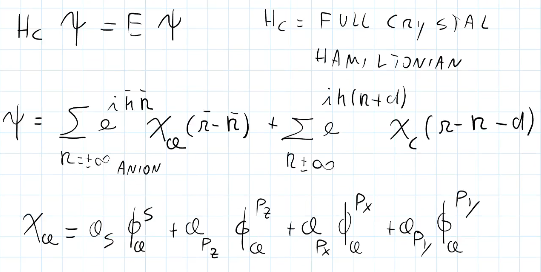 H_C Ψ = E Ψ H_C = FULL CRYSTAL
HAMILTONIAN
Ψ = Σ_{n=±∞} e^{i h̄ n̄} χ_a (r̄ - n̄) + Σ_{n±∞} e^{ih(n+d)} χ_c (r - n - d)
ANION
χ_a = a_s ϕ_a^s + a_{P_z} ϕ_a^{P_z} + a_{P_x} ϕ_a^{P_x} + a_{P_y} ϕ_a^{P_y}